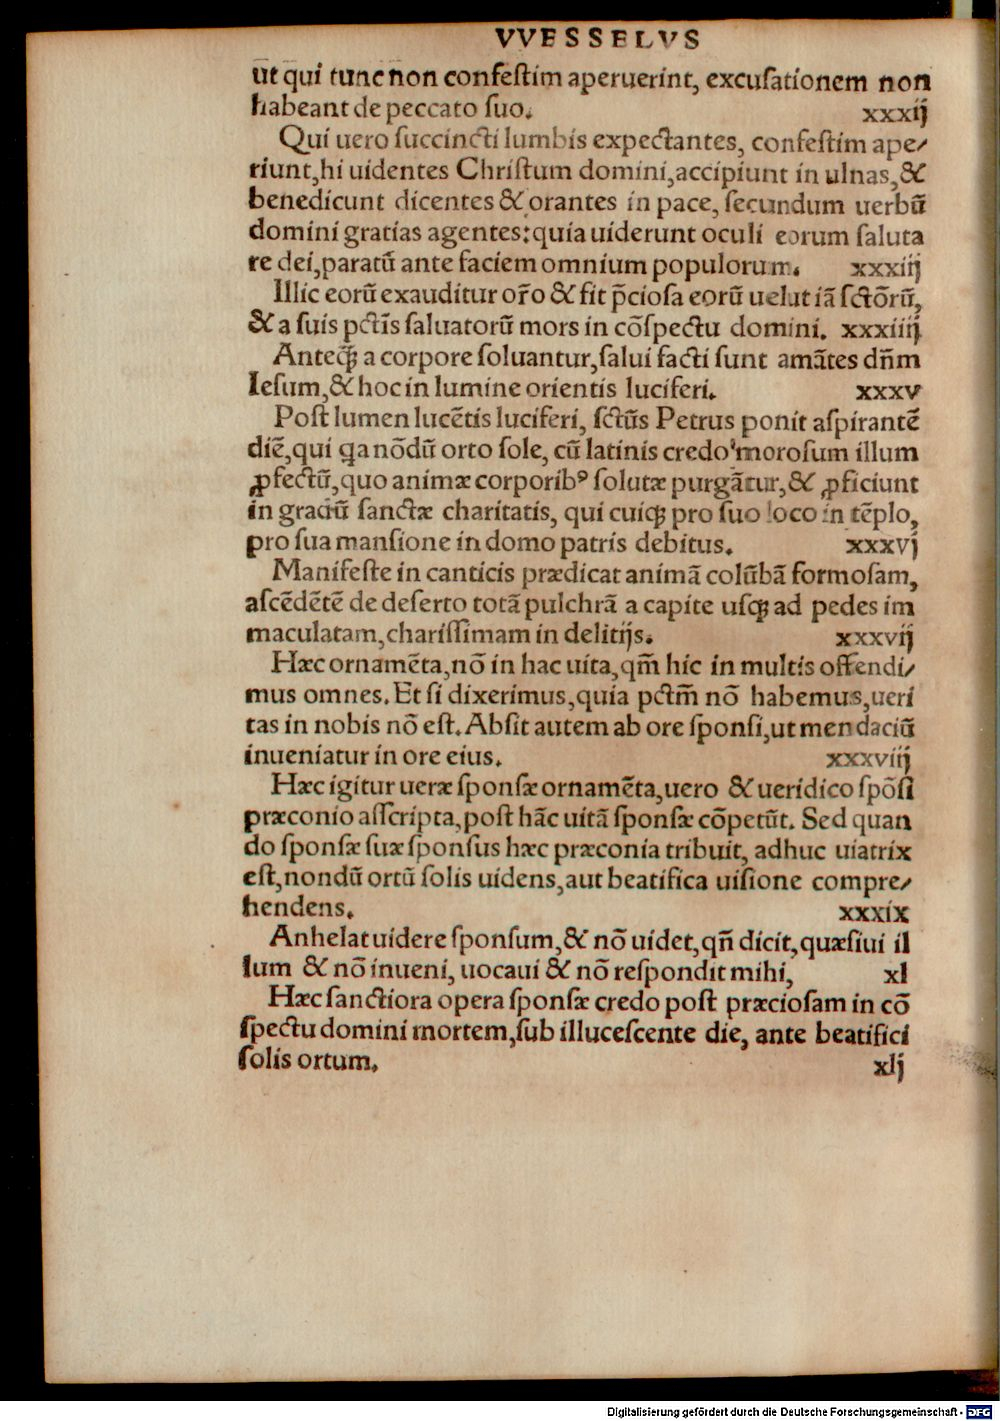 VVESSELVS
ut qui tunc non confestim aperuerint, excusationem non
habeant de peccato suo. xxxij
Qui uero succincti lumbis expectantes, confestim ape/
riunt, hi uidentes Christum domini, accipiunt in ulnas, &
benedicunt dicentes & orantes in pace, secundum uerbũ
domini gratias agentes: quia uiderunt oculi eorum saluta
re dei, paratũ ante faciem omnium populorum. xxxiij
Illic eorũ exauditur or̃o & fit p̃ciosa eorũ uelut iã sctõrũ,
& a suis pctĩs saluatorũ mors in cõspectu domini. xxxiiij
Anteqꝫ a corpore soluantur, salui facti sunt amãtes dñm
Iesum, & hoc in lumine orientis luciferi. xxxv
Post lumen lucẽtis luciferi, sctũs Petrus ponit aspirantẽ
diẽ, qui ꝗa nõdũ orto sole, cũ latinis credo morosum illum
ꝓfectũ, quo animæ corporibꝰ solutæ purgãtur, & ꝓficiunt
in gradũ sanctæ charitatis, qui cuiqꝫ pro suo loco in tẽplo,
pro sua mansione in domo patris debitus. xxxvj
Manifeste in canticis prædicat animã colũbã formosam,
ascẽdẽtẽ de deserto totã pulchrã a capite usqꝫ ad pedes im
maculatam, charissimam in delitijs. xxxvij
Hæc ornamẽta, nõ in hac uita, qm̃ hic in multis offendi/
mus omnes. Et si dixerimus, quia pctm̃ nõ habemus, ueri
tas in nobis nõ est. Absit autem ab ore sponsi, ut mendaciũ
inueniatur in ore eius. xxxviij
Hæc igitur ueræ sponsæ ornamẽta, uero & ueridico spõsi
præconio asscripta, post hãc uitã sponsæ cõpetũt. Sed quan
do sponsæ suæ sponsus hæc præconia tribuit, adhuc uiatrix
est, nondũ ortũ solis uidens, aut beatifica uisione compre/
hendens. xxxix
Anhelat uidere sponsum, & nõ uidet, qñ dicit, quæsiui il
lum & nõ inueni, uocaui & nõ respondit mihi, xl
Hæc sanctiora opera sponsæ credo post præciosam in cõ
spectu domini mortem, sub illucescente die, ante beatifici
solis ortum. xlj
Digitalisierung gefördert durch die Deutsche Forschungsgemeinschaft - DFG